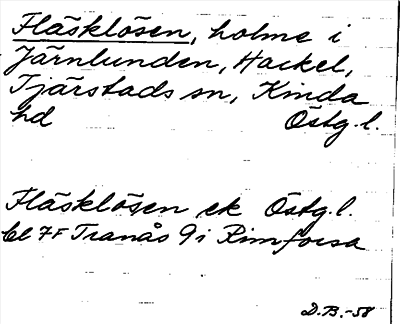 Fläsklösen, holme i
Järnlunden, Hackel,
Tjärstads sn, Kinda
hd Östg.l.
Fläsklösen ek Östg.l.
bl 7F Tranås 9i Rimforsa
D.B.-58